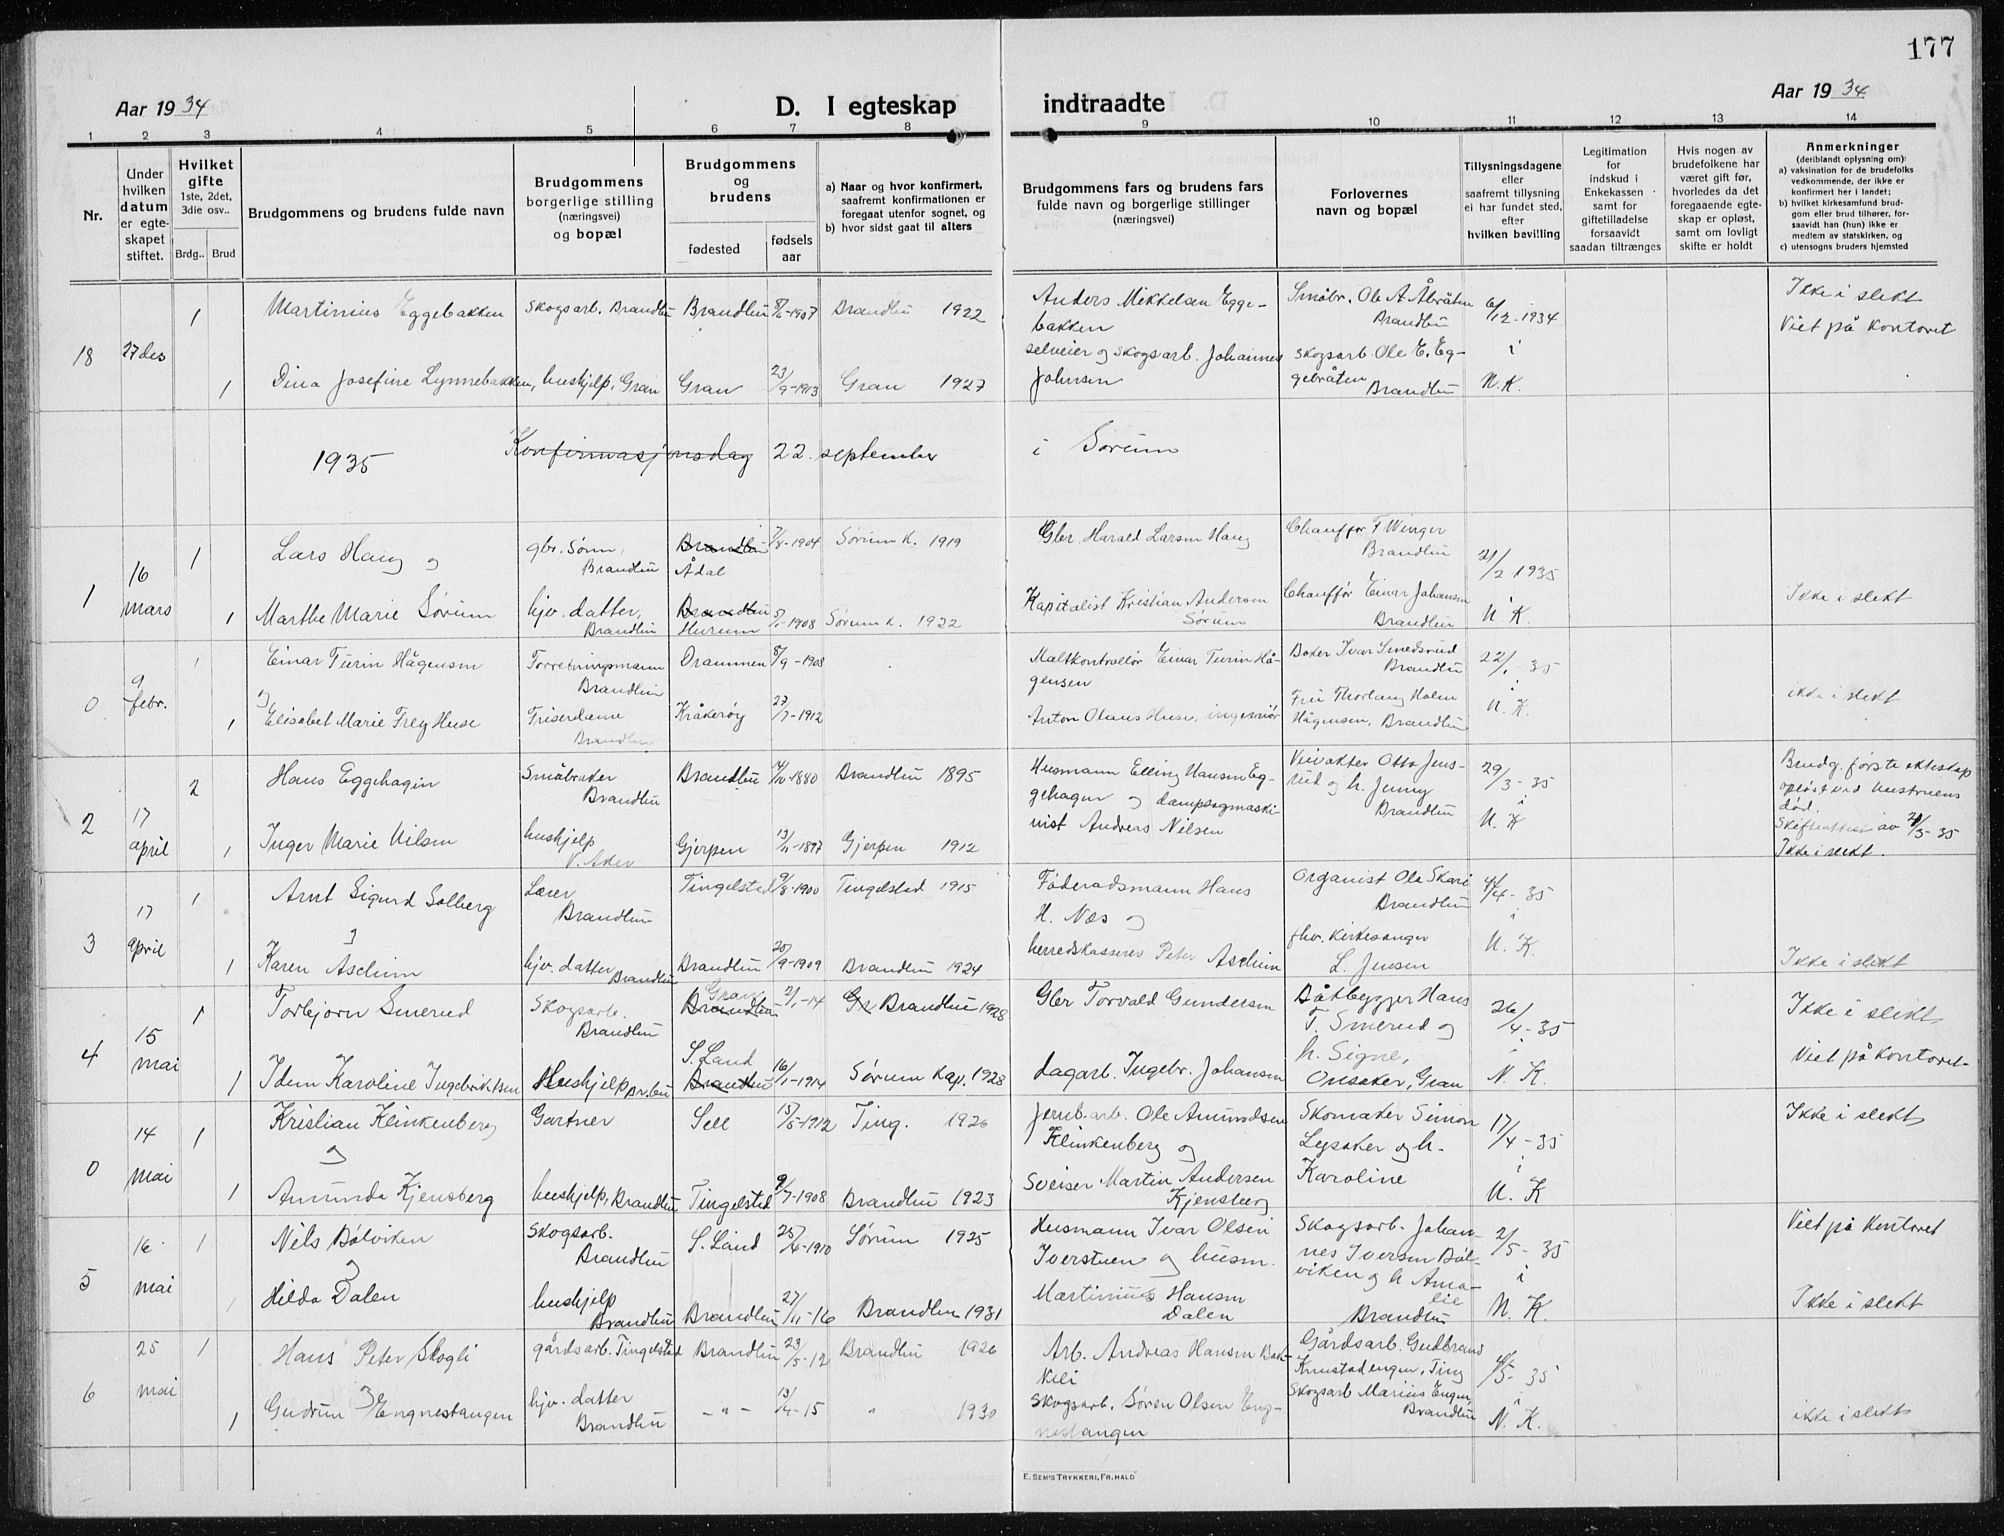 177
Aar 1934
D. I egteskap indtraadte
Aar 1934
1 2 3 4 5 6 7 8 9 10 11 12 13 14
Nr.
Under hvilken datum er egte- skapet stiftet.
Hvilket gifte
1ste, 2det, 3die osv..
Brdg.. Brud
Brudgommens og brudens fulde navn
Brudgommens borgerlige stilling (næringsvei) og bopæl
Brudgommens og brudens
fødested
fødsels aar
a) Naar og hvor konfirmert, saafremt konfirmationen er foregaat utenfor sognet, og
b) hvor sidst gaat til alters
Brudgommens fars og brudens fars fulde navn og borgerlige stillinger (næringsvei)
Forlovernes navn og bopæl
Tillysningsdagene eller saafremt tillysning ei har fundet sted, efter hvilken bevilling
Legitimation for indskud i Enkekassen samt for giftetilladelse forsaavidt saadan tiltrænges
Hvis nogen av brudefolkene har været gift før, hvorledes da det foregaaende egte- skap er opløst, samt om lovligt skifte er holdt
Anmerkninger
(deriblandt oplysning om):
a) vaksination for de brudefolks vedkommende, der ikke er konfirmert her i landet;
b) hvilket kirkesamfund brud- gom eller brud tilhører, for- saavidt han (hun) ikke er medlem av statskirken, og
c) utensogns bruders hjemsted
18 27 des
1 Martinius Eggebakken Skogsarb. Brandbu Brandbu 8/6-1907 Brandbu 1922
Anders Mikkelsen Egge- bakken
Småbr. Ole A. Åbråten Brandbu
6/12-1934 i N.K.
Ikke i slekt
Viet på kontoret
1 Dina Josefine Lynnebakken, hushjelp, Gran Gran 23/9-1913 Gran 1927
selveier og skogsarb. Johannes Johnsen
skogsarb. Ole E. Eg- gebråten Brandbu
1935 Konfirmasjonsdag 22. september i Sørum
1 16 mars
1 Lars Haug og gbr. sønn, Brandbu Brandbu Ådal 7/8-1904 Sørum k. 1919
Gbr. Harald Larsen Haug
Chauffør F. Winger Brandbu
21/2 1935 i N.K.
1 Marthe Marie Sørum hjv. datter, Brandbu Brandbu Hurum 1908 Sørum k. 1922
Kapitalist Kristian Andersen Sørum
Chauffør Einar Johansen Brandbu
Ikke i slekt
0 9 febr.
1 Einar Turin Hågensen Forretningsmann Brandbu Drammen 8/9-1908
Maltkontrollør Einar Turin Hå- gensen
Baker Ivar Smedsrud Brandbu
22/1-35 i N.K.
og
1 Elisabet Marie Frey Huse Friserdame Brandbu Kråkerøy 27/7-1912
Anton Olaus Huse, ingeniør
Fru Thorlaug Holm Hågensen, Brandbu
ikke i slekt
2 17 april
2 Hans Eggehagen Småbruker Brandbu Brandbu 14/10-1880 Brandbu 1895
Husmann Elling Hansen Eg- gehagen og dampsagmaski- nist Andreas Nilsen
Veivokter Otto Jens- rud og h. Jenny Brandbu
29/3-35 i N.K
Brudg. første ekteskap opløst ved hustruens død.
Skifteattest av 21/3-35
Ikke i slekt.
1 Inger Marie Nilsen hushjelp V. Aker Gjerpen 13/11-1897 Gjerpen 1912
3 17 april
1 Arnt Sigurd Solberg Lærer Brandbu Tingelstad 9/8-1900 Tingelstad 1915
og
Føderådsmann Hans H. Næs og
Organist Ole Skari Brandbu
4/4-35 i N.K.
1 Karen Aschim hjv. datter Brandbu Brandbu 20/9-1909 Brandbu 1924
herredskasserer Peter Aschim
fhv. kirkesanger L. Jensen
Ikke i slekt
4 15 mai
1 Torbjørn Smerud Skogsarb. Brandbu Gran Brandbu 2/1-14 Gr Brandbu 1928
Gbr Torvald Gundersen
Båtbygger Hans T. Smerud og h. Signe, Onsaker, Gran
26/4-35 i N.K.
Ikke i slekt
Viet på kontoret
1 Idem Karoline Ingebriktsen Hushjelp Br.bu S. Land Brandbu 16/1-1914 Sørum kap. 1928
dagarb. Ingebr. Johansen
0 14 mai
1 Kristian Klinkenberg Gartner Sell 15/5-1912 Ting. 1926
og
Jernb.arb. Ole Amundsen Klinkenberg og
Skomaker Simon Lysaker og h. Karoline
17/4-35 i N.K
Ikke i slekt
1 Amunda Kjensberg hushjelp, Brandbu Tingelstad 9/7-1908 Brandbu 1923
Sveiser Martin Andersen Kjensberg
5 16 mai
1 Nils Bølviken Skogsarb. Brandbu S. Land 25/4-1910 Sørum 1925
og
Husmann Ivar Olsen Iverstuen og husm.
Skogsarb. Johan- nes Iversen Bøl- viken og h Ama- lie Brandbu
2/5-35 i N.K.
Viet på kontoret
1 Hilda Dalen hushjelp Brandbu Brandbu 27/11-16 Brandbu 1931
Martinius Hansen Dalen
Ikke i slekt
6 25 mai
1 Hans Peter Skogli gårdsarb. Tingelstad Brandbu 23/5-12 Brandbu 1926
og
Arb. Andreas Hansen Bak- keli
Gårdsarb. Gudbrand Knustadengen, Ting
4/5-35 i N.K.
1 Gudrun Engnestangen hjv. datter Brandbu -"- 13/4-15 " 1930
Skogsarb. Søren Olsen Eng- nestangen
Skogsarb Marius Engen, Brandbu
ikke i slekt
E. SEM'S TRYKKERI, FR.HALD